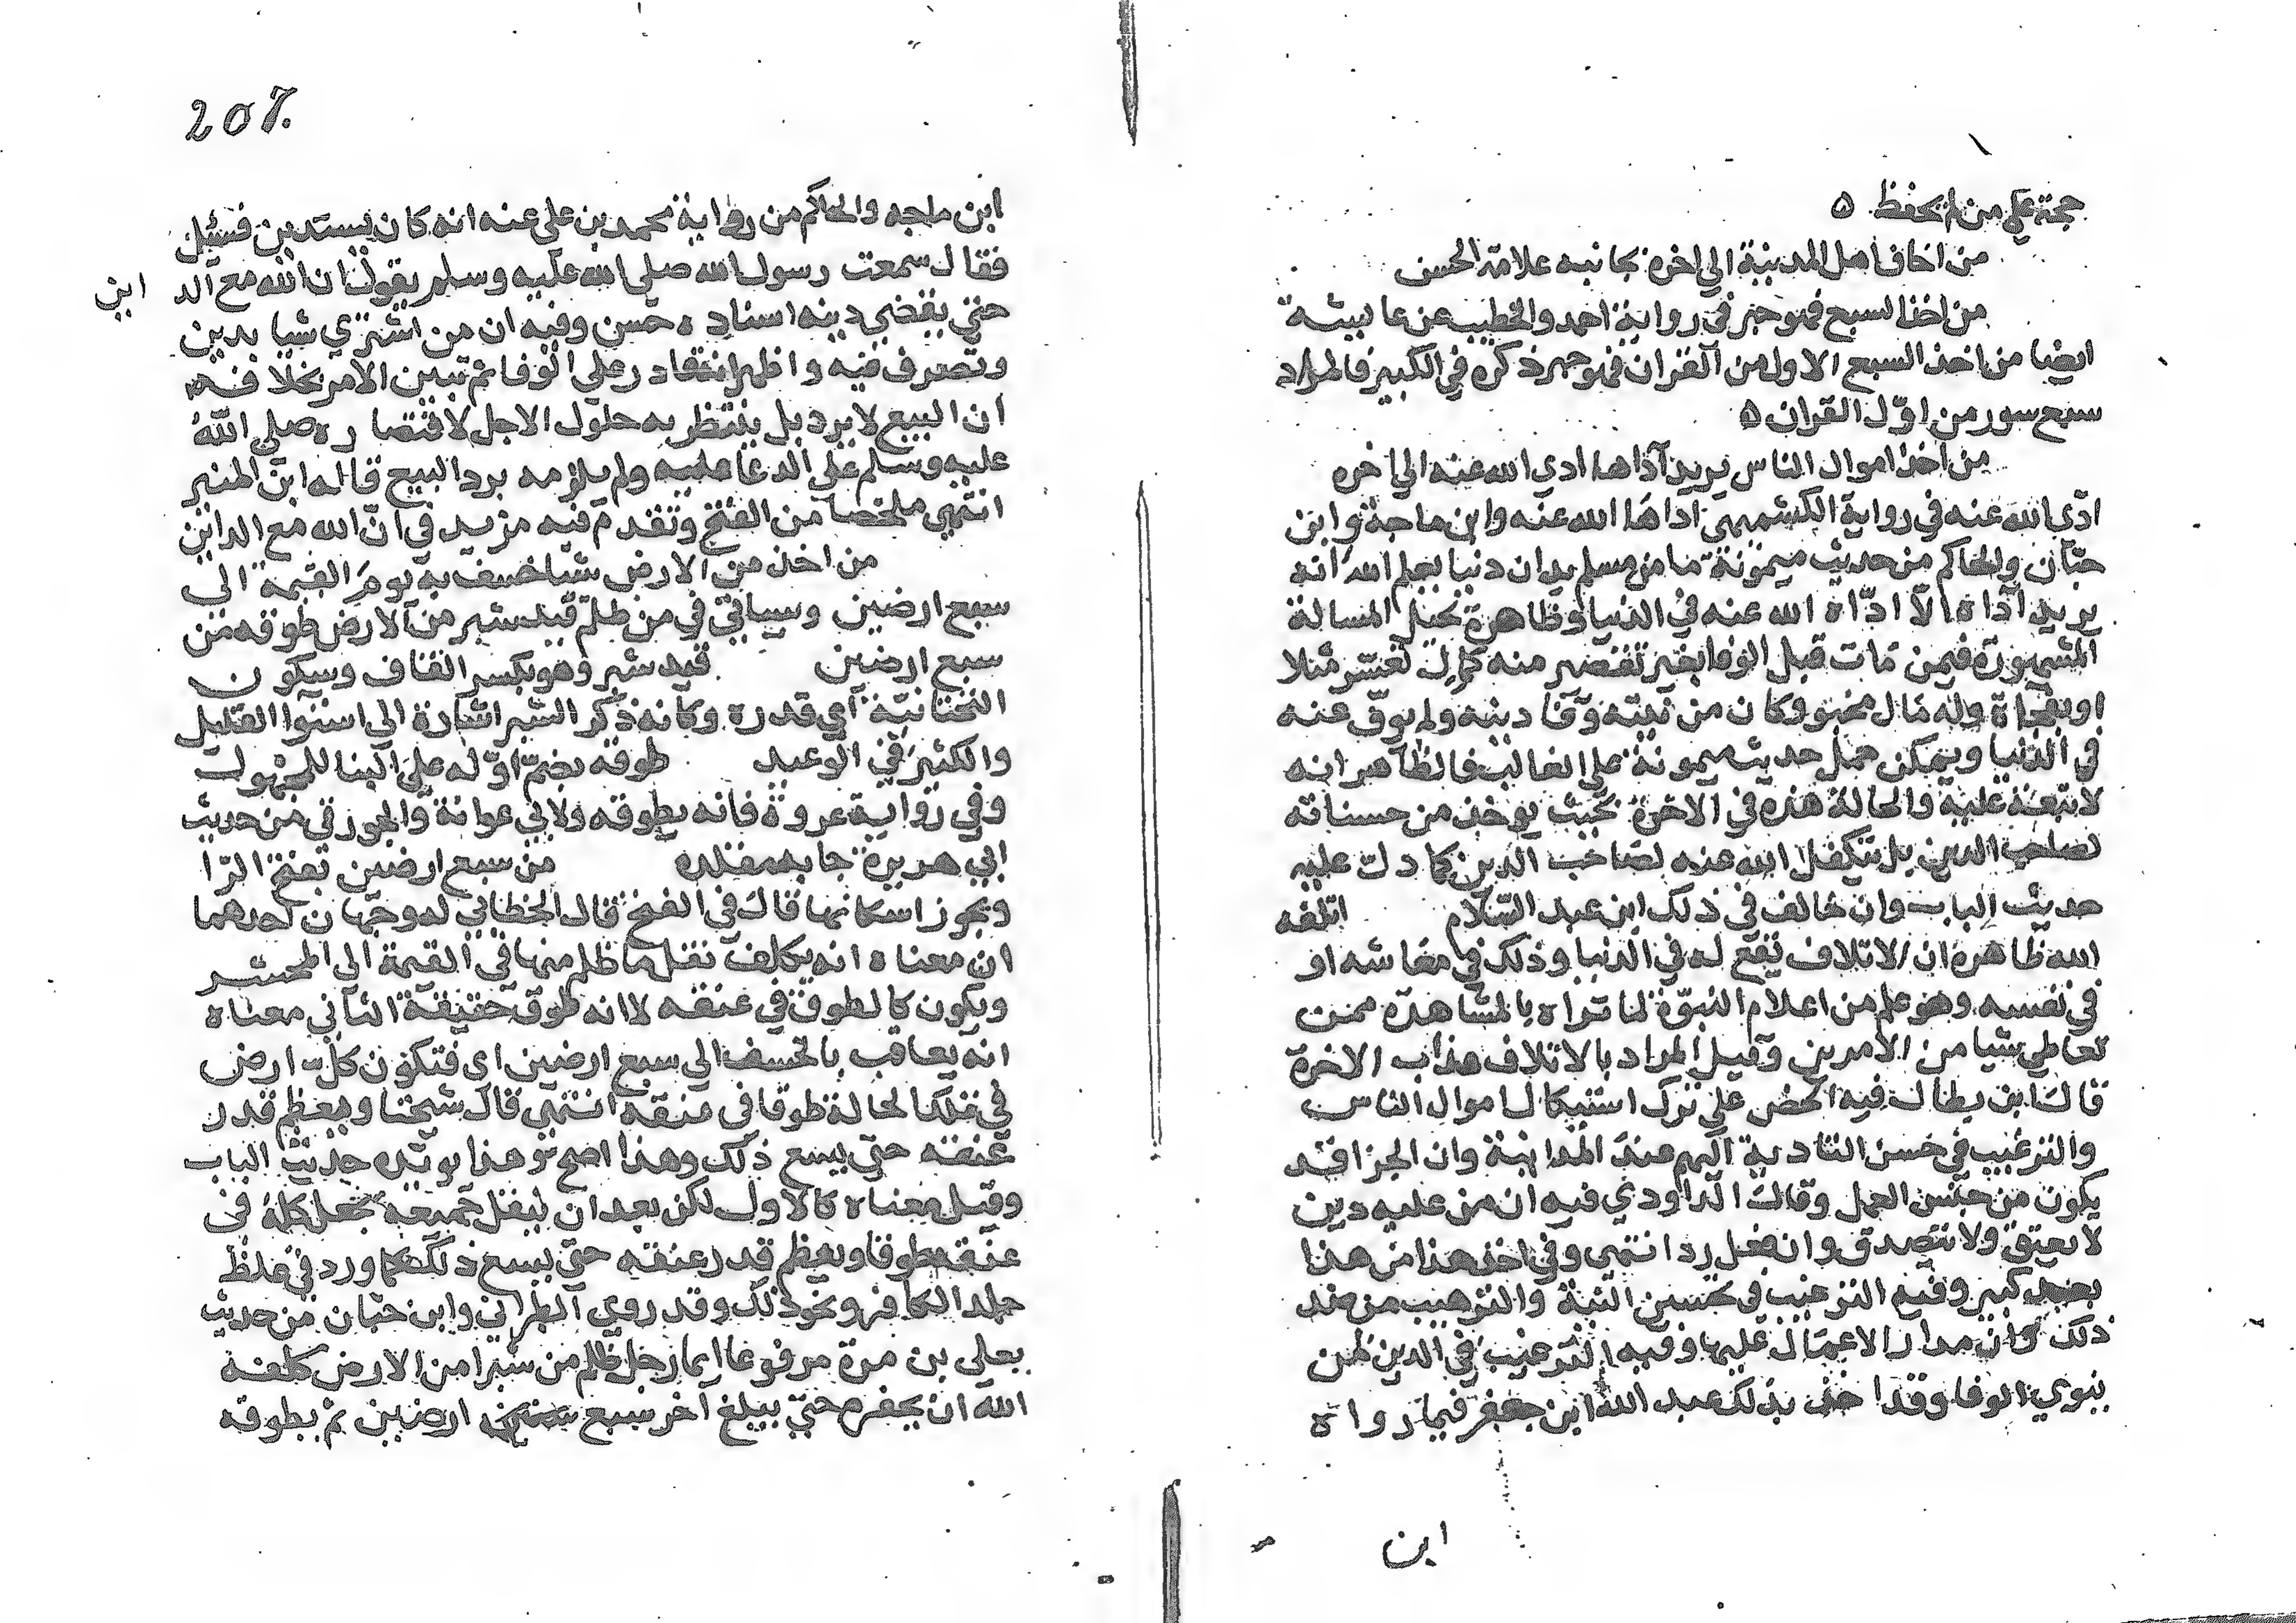 حجة على من لم يحفظ ٥
من اخاف اهل المدينة الي اخره بجانبه علامة الحسن
من اخذ السبع فهو حبر في رواية احمد والخطيب عن عايشة
ايضا من اخذ السبع الاول من القران فهو حبر ذكره في الكبير فالمراد
سبع سور من اوّل القران ٥
من اخذ اموال الناس يريد آداها ادي الله عنه الي اخره
ادّي الله عنه في رواية الكشميهني اداها الله عنه وابن ماجة وابن
حبّان والحاكم من حديث ميمونة ما من مسلم يدان دنيا يعلم الله انه
يريد آداه الّا ادّاه الله عنه في الدنيا وظاهره تحيل المسالة
المشهورة فيمن مات قبل الوفا بغير تقصير منه كان تعسّر مثلا
او بفجاة وله مال مخبو وكان من نيته وفا دينه ولم يوفّ عنه
في الدنيا ويمكن حمل حديث ميمونة على الغالب فالظاهر انه
لا تبعة عليه والحالة هذه في الاخرة بحيث يوخذ من حسناته
لصاحب الدين بل يتكفل الله عنه لصاحب الدين كما دل عليه
حديث الباب وان خالف في ذلك ابن عبد السّلام اتلفه
الله ظاهره ان الاتلاف يقع له في الدنيا وذلك في معاشه او
في نفسه وهو علم من اعلام النبوّة لما نراه بالمشاهدة ممن
تعاطي شيا من الامرين وقيل المراد بالاتلاف عذاب الاخرة
قال ابن بطال فيه الحض على ترك استيكال اموال الناس
والترغيب في حسن التادية اليهم عند المداينة وان الجزا قد
يكون من جنس العمل وقال الداودي فيه ان من عليه دين
لا يعتق ولا يتصدق وان فعل رد انتهى وفي اخذ هذا من هذا
بعد كبير وفيه الترغيب في تحسين النية والترهيب من ضد
ذلك وان مدار الاعمال عليها وفيه الترغيب في الدين لمن
ينوي الوفا وقد اخذ بذلك عبد الله ابن جعفر فيما رواه
ابن
207.
ابن ماجه والحاكم من رواية محمد بن علي عنه انه كان يستدين فسئل
فقال سمعت رسول الله صلي الله عليه وسلم يقول ان الله مع الد اين
حتي يقضي دينه اسناده حسن وفيه ان من اشتري شيا بدين
وتصرف فيه واظهر انه قادر علي الوفا ثم تبين الامر بخلافه
ان البيع لا يرد بل ينتظر به حلول الاجل لاقتصاره صلي الله
عليه وسلم علي الدعا عليه ولم يلزمه برد البيع قاله ابن المنير
انتهي ملخصا من الفتح وتقدم فيه مزيد في انّ الله مع الداين
من اخذ من الارض شيا خسف به يوم القيمة الى
سبع ارضين وسياتي في من ظلم قيد شبر من الارض طوقه من
سبع ارضين قيد شبر وهو بكسر القاف وسكون
التحتانيّة اي قدره وكانه ذكر الشبر اشارة الي استوا القليل
والكثير في الوعيد طوقه بضمّ اوّله علي البنا للمجهول
وفي رواية عروة فانه يطوقه ولابي عوانة والجوزقي من حديث
ابي هريرة جا به مقلده من سبع ارضين بفتح الرّا
ويجوز اسكانها قال في الفتح قال الخطابي له وجهان احدهما
ان معناه انه يكلف نقل ما ظلم منها في القيمة الي المحشر
ويكون كالطوق في عنقه لا انه طوق حقيقة الثاني معناه
انه يعاقب بالخسف الي سبع ارضين اي فتكون كلّ ارض
في تلك الحالة طوقا في عنقه انتهى قال شيخنا ويعظم قدر
عنقه حتي يسع ذلك وهذا اصح هذا يويّده حديث الباب
وقيل معناه كالاول لكن بعد ان ينقل جميعه يجعل كله في
عنقه طوقا ويعظم قدر عنقه حتي يسع ذلك كما ورد في غلظ
جلد الكافر ونحو ذلك وقد روي الطبراني وابن حبان من حديث
يعلي بن مرة مرفوعا ايما رجل ظلم من شبرا من الارض كلفه
الله ان يحفره حتي يبلغ اخر سبع ارضين ثم يطوقه